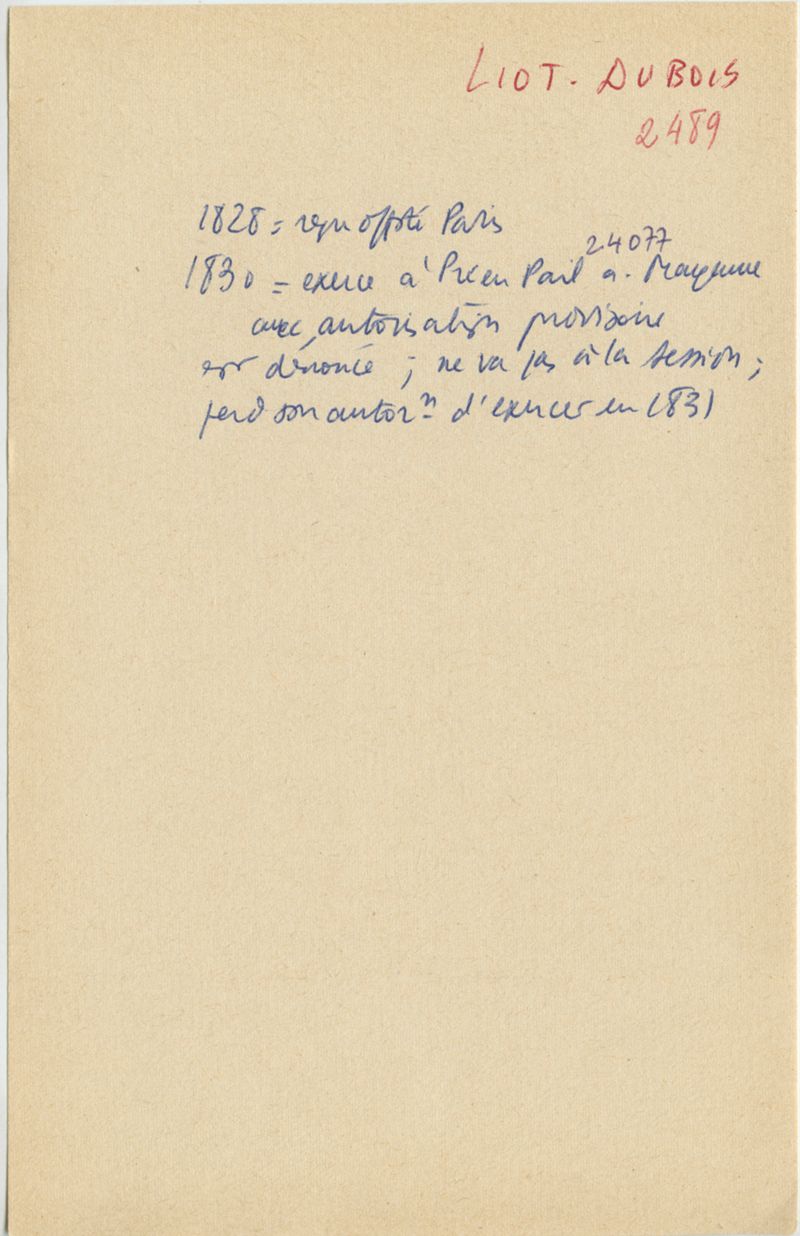 LIOT. DUBOIS
2489
1828 = reçu Paris
24077
1830 = exerce à Pré en Pail a. Mayenne
avec autorisation provisoire
est dénoncé ; ne va pas à la session ;
perd son autorⁿ d'exercer en 1831